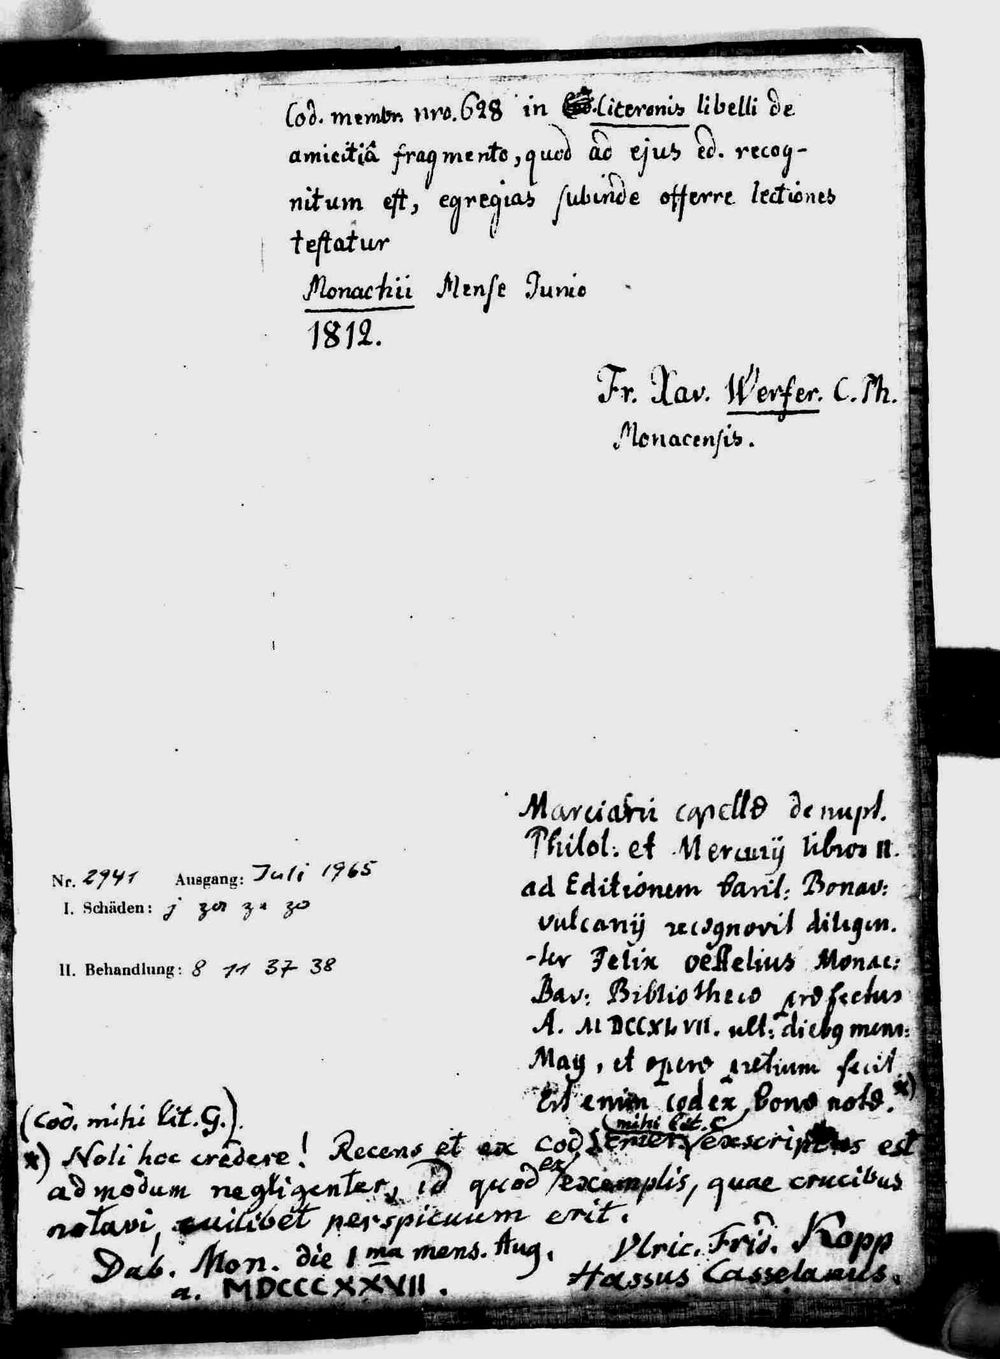 Cod. membr. nro. 628 in Ciceronis libelli de
amicitiâ fragmento, quod ad ejus ed. recog-
nitum eſt, egregias ſubinde offerre lectiones
teſtatur
Monachii Menſe Junio
1812.
Fr. Xav. Werfer. C. Ph.
Monacenſis.
Marciani capellę de nupt.
Philol: et Mercurij libros II.
ad Editionem basil: Bonav:
vulcanij recognovit diligen.
-ter Felix oefelius Monac:
Bav: Bibliothecę pręfectus
A. MDCCXLVII. ult: diebus mens:
Maij, et operę pretium fecit
Est enim codex bonę notę. *)
Nr. 2941 Ausgang: Juli 1965
I. Schäden: j
II. Behandlung: 8 11 37 38
(Cod. mihi lit. G.)
*) Noli hoc credere! Recens et ex cod. (mihi lit. C) exscriptus est
admodum negligenter, id quod ex exemplis, quae crucibus
notavi, cuilibet perspicuum erit.
Dab. Mon. die 1ma mens. Aug.
a. MDCCCXXVII.
Ulric. Frid. Kopp
Hassus Casselanus.